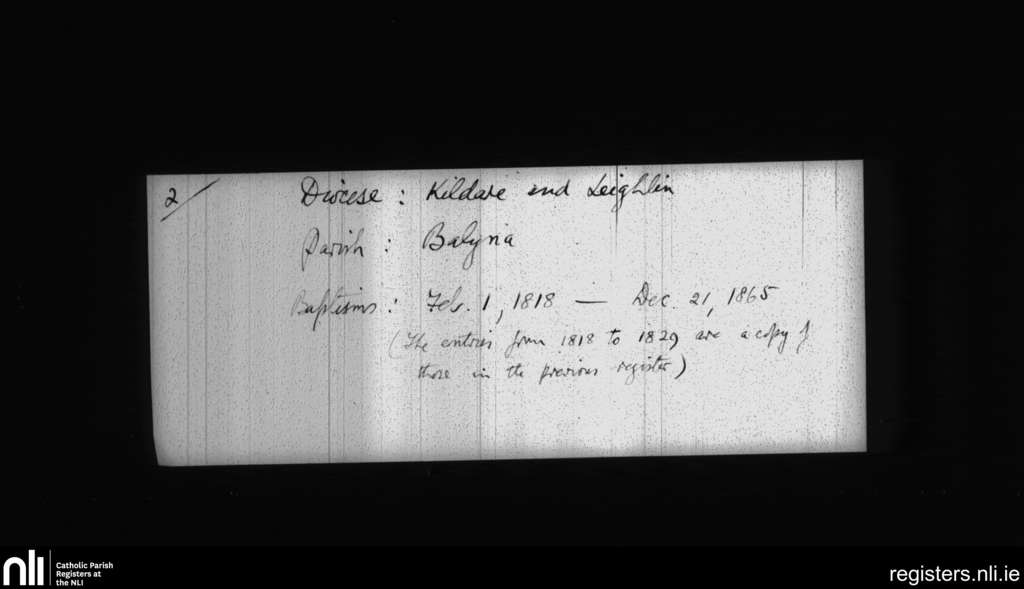 2/
Diocese : Kildare and Leighlin
Parish : Balyna
Baptisms : Feb. 1, 1818 — Dec. 21, 1865
(The entries from 1818 to 1829 are a copy of
those in the previous register)
nli
Catholic Parish
Registers at
the NLI
registers.nli.ie